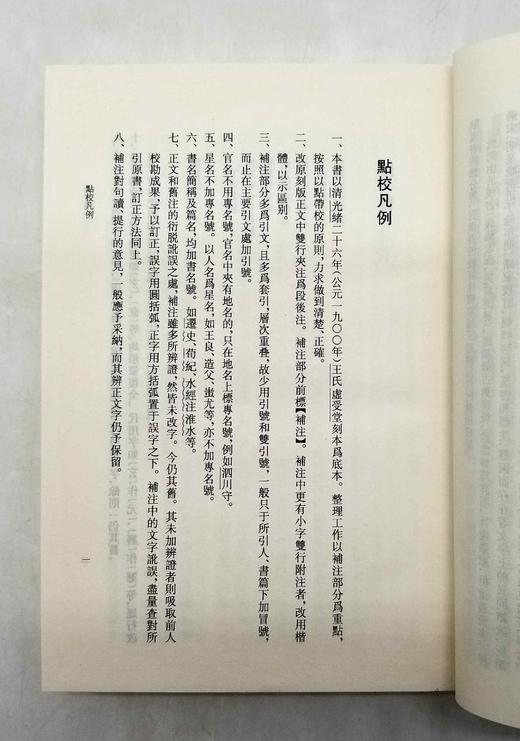 點校凡例
一、本書以清光緒二十六年（公元一九〇〇年）王氏虛受堂刻本爲底本。整理工作以補注部分爲重點，
按照以點帶校的原則，力求做到清楚、正確。
二、改原刻版正文中雙行夾注爲段後注。補注部分前標【補注】。補注中更有小字雙行附注者，改用楷
體，以示區别。
三、補注部分多爲引文，且多爲套引，層次重叠，故少用引號和雙引號，一般只于所引人、書篇下加冒號，
而止在主要引文處加引號。
四、官名不用專名號，官名中夾有地名的，只在地名上標專名號，例如泗川守。
五、星名不加專名號。以人名爲星名，如王良、造父、蚩尤等，亦不加專名號。
六、書名簡稱及篇名，均加書名號。如遷史、荀紀、水經注淮水等。
七、正文和舊注的衍脱訛誤之處，補注雖多所辨證，然皆未改字。今仍其舊。其未加辨證者則吸取前人
校勘成果，予以訂正，誤字用圓括弧，正字用方括弧置于誤字之下。補注中的文字訛誤，盡量查對所
引原書，訂正方法同上。
八、補注對句讀、提行的意見，一般應予采納，而其辨正文字仍予保留。
點校凡例
一